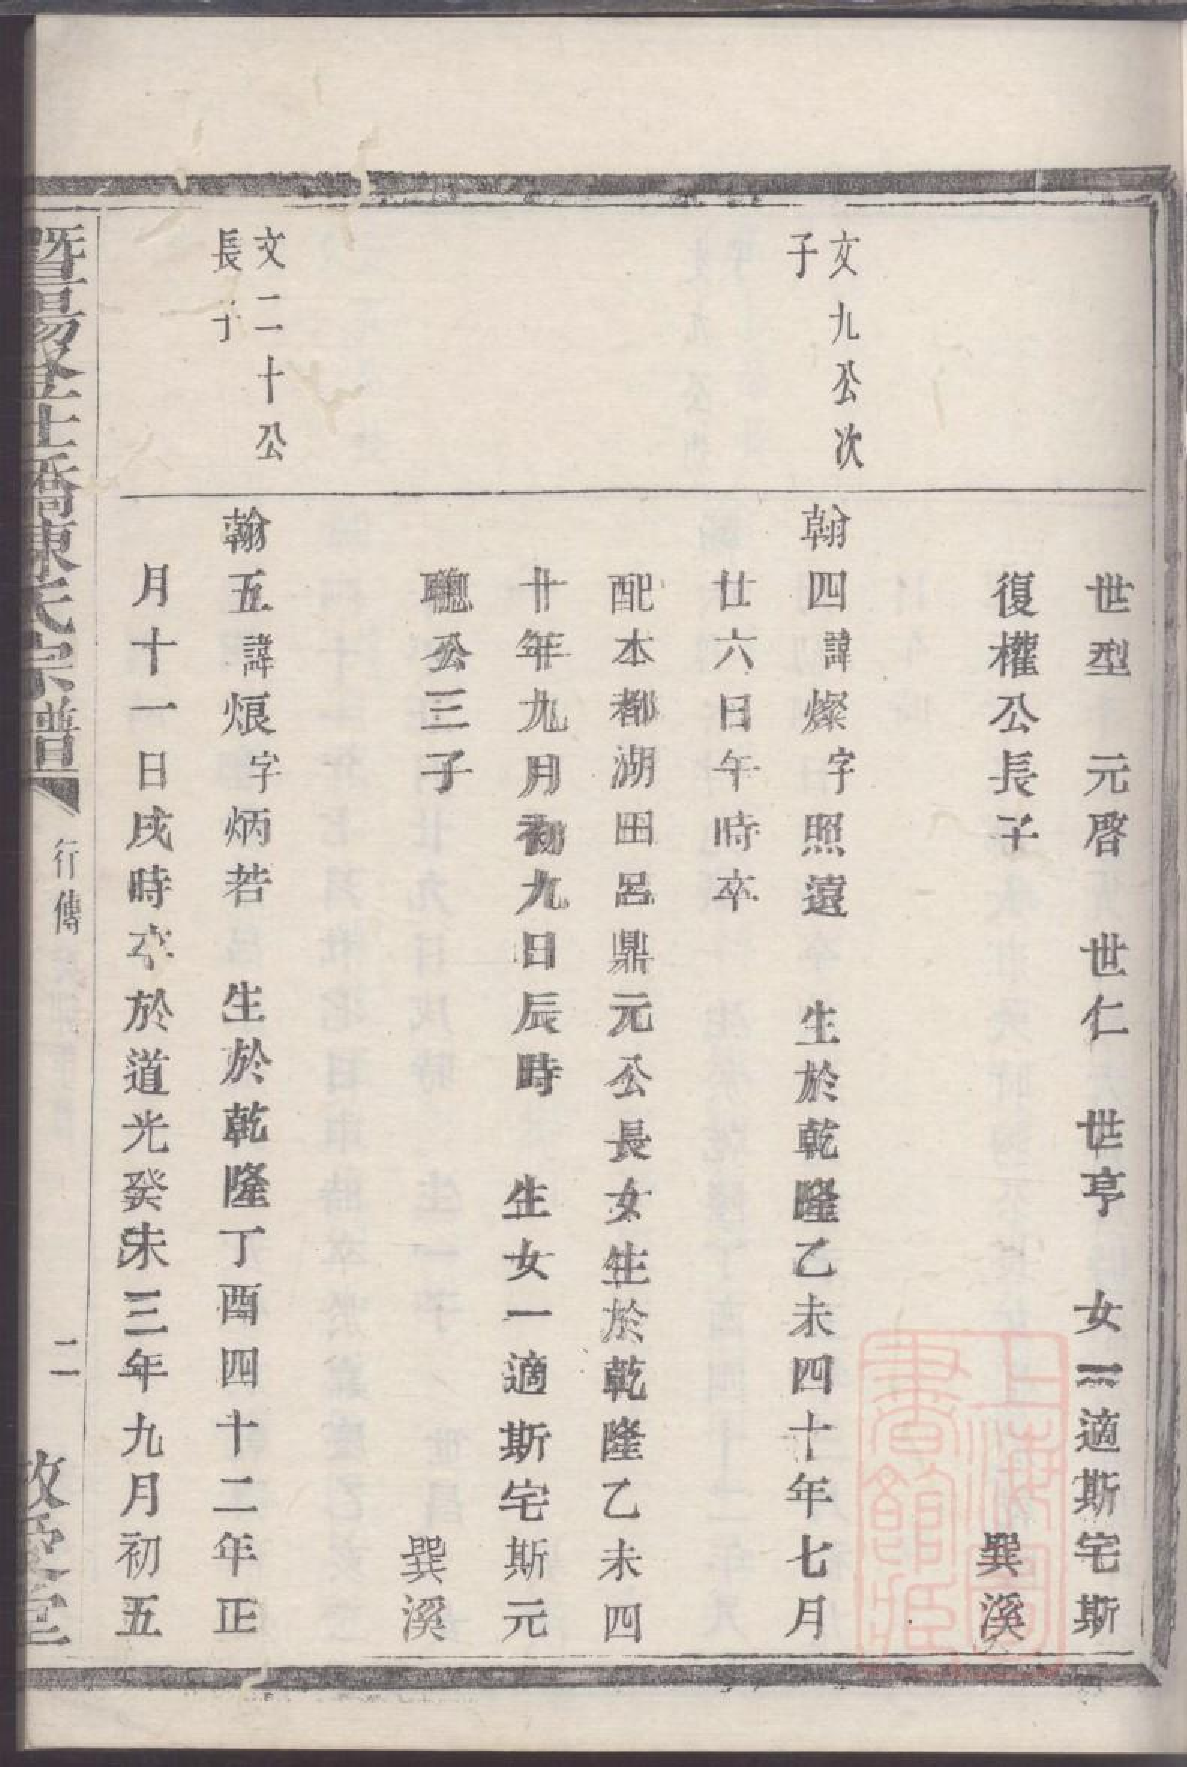 世型 元啓 世仁 世亨 女一適斯宅斯
復權公長子 巽溪
文九公次
子
翰四諱燦字照遠 生於乾隆乙未四十年七月
廿六日午時卒
配本都湖田呂鼎元公長女生於乾隆乙未四
十年九月初九日辰時 生女一適斯宅斯元
聰公三子 巽溪
文二十公
長子
翰五諱烺字炳若 生於乾隆丁酉四十二年正
月十一日戌時卒於道光癸未三年九月初五
暨陽金士橋陳氏宗譜 行傳 二 敬愛堂
上海圖書館藏